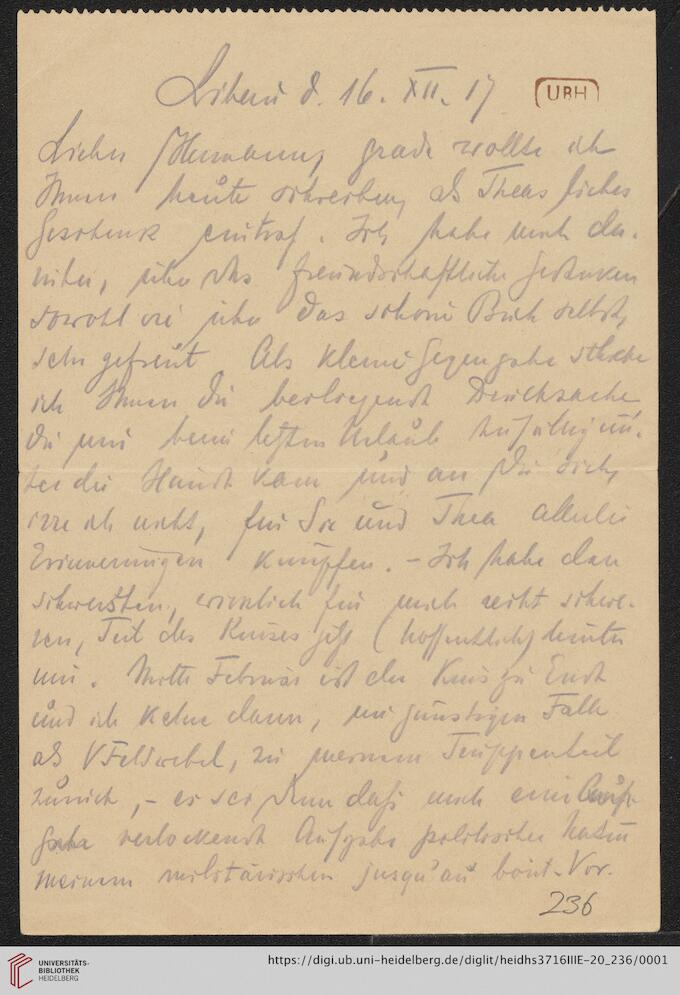 Libau d. 16. XII. 17
UBH
Lieber Hermann, grade wollte ich
Ihnen heute schreiben, als Theas liebes
Geschenk eintraf. Ich habe mich da-
rüber, über das freundschaftliche Gedenken
sowohl wie über das schöne Buch selbst,
sehr gefreut. Als kleine Gegengabe schicke
ich Ihnen die beiliegende Drucksache
die mir beim letzten Urlaub zufällig un-
ter die Hände kam und an die sich,
irre ich nicht, für Sie und Thea allerlei
Erinnerungen knüpfen. – Ich habe den
schwersten, wirklich für mich recht schwe-
ren, Teil des Kurses jetzt (hoffentlich) hinter
mir. Mitte Februar ist der Kurs zu Ende
und ich kehre dann, im günstigen Falle
als VFeldwebel, zu meinem Truppenteil
zurück, – es sei denn daß mich eine
verlockende Aufgabe politischer Natur
meinem militärischen jusqu'au bout-Vor-
236
UNIVERSITÄTS-
BIBLIOTHEK
HEIDELBERG
https://digi.ub.uni-heidelberg.de/diglit/heidhs3716IIIE-20_236/0001